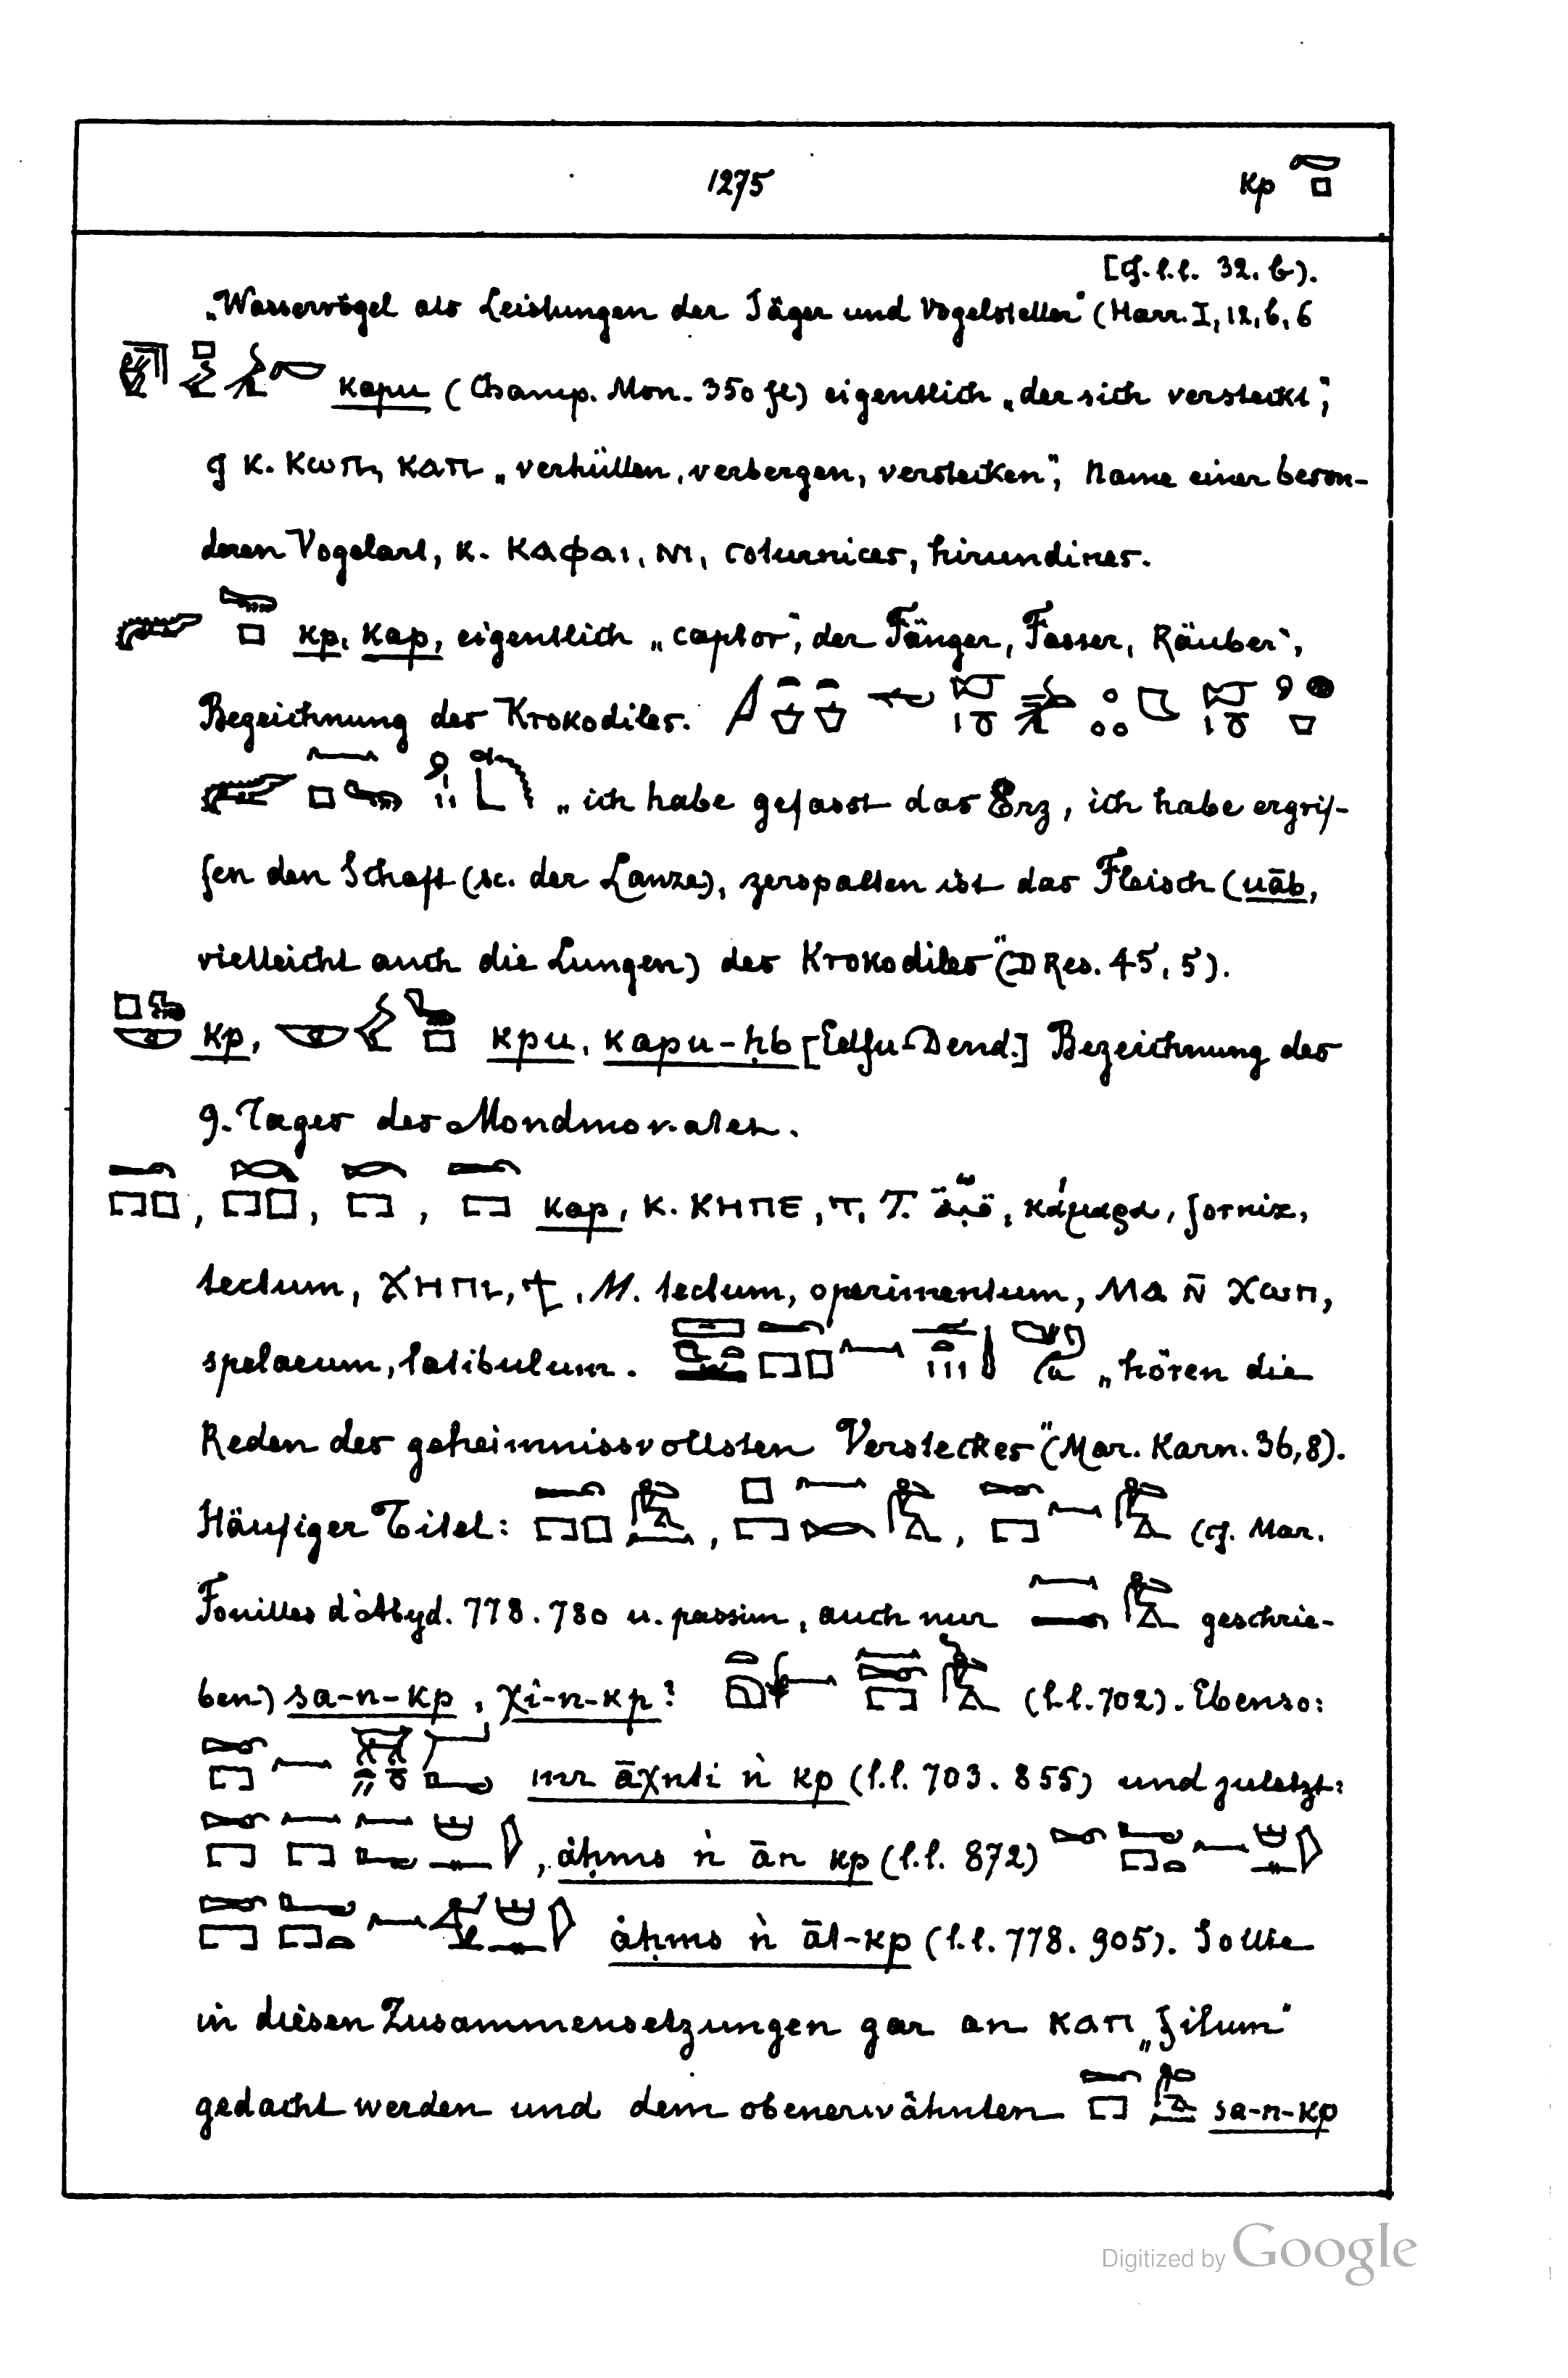 1275
kp
[cf. l.l. 32. b).
„Wasservögel als Leistungen der Jäger und Vogelsteller“ (Harr. I, 12, b, 6
kapu (Champ. Mon. 350 fl) eigentlich „der sich versteckt“,
cf K. ⲕⲱⲡ, ⲕⲁⲡ „verhüllen, verbergen, verstecken“, Name einer beson-
deren Vogelart, K. ⲕⲁⲫⲁⲓ, ⲛⲓ, coturnices, hirundines.
kp, kap, eigentlich „captor“, der Fänger, Fasser, Räuber“,
Bezeichnung des Krokodiles.
„ich habe gefasst das Erz, ich habe ergrif-
fen den Schaft (sc. der Lanze), zerspalten ist das Fleisch (uāb,
vielleicht auch die Lungen) des Krokodiles“ (DRes. 45, 5).
kp, kpu, kapu-ḥb [Edfu-Dend.] Bezeichnung des
9. Tages des Mondmonates.
kap, K. ⲕⲏⲡⲉ, ⲧ, T. καμαρα, fornix,
tectum, ⲭⲏⲡⲓ, ϯ, M. tectum, operimentum, ⲙⲁ ⲛ̄ ⲭⲱⲡ,
spelaeum, latibulum. „hören die
Reden des geheimnissvollsten Versteckes“ (Mar. Karn. 36, 8).
Häufiger Titel: , , (cf. Mar.
Fouilles d'Abyd. 778. 780 u. passim, auch nur geschrie-
ben) sa-n-kp, χi-n-kp? (l.l. 702). Ebenso:
mr āχnti ǹ kp (l.l. 703. 855) und zuletzt:
, ȧḥms ǹ ān kp (l.l. 872)
ȧḥms ǹ āt-kp (l.l. 778. 905). Sollte
in diesen Zusammensetzungen gar an ⲕⲁⲡ „filum“
gedacht werden und dem obenerwähnten sa-n-kp
Digitized by Google